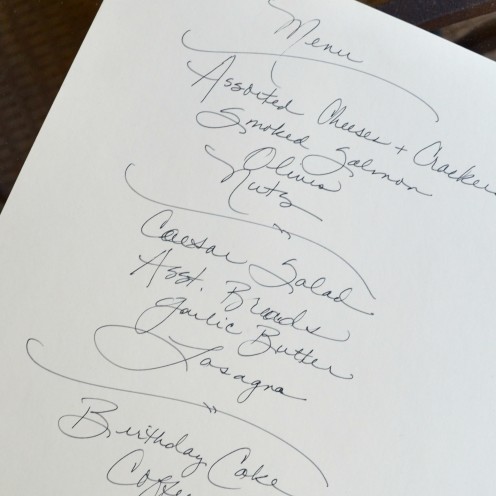 Menu
Assorted Cheeses + Crackers
Smoked Salmon
Olives
Nuts
Caesar Salad
Asst. Breads
Garlic Butter
Lasagna
Birthday Cake
Coffee